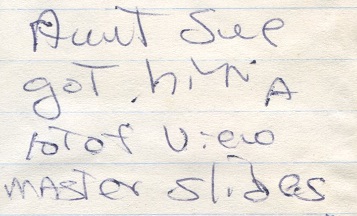 Aunt Sue
got him A
lot of View
mAster slides